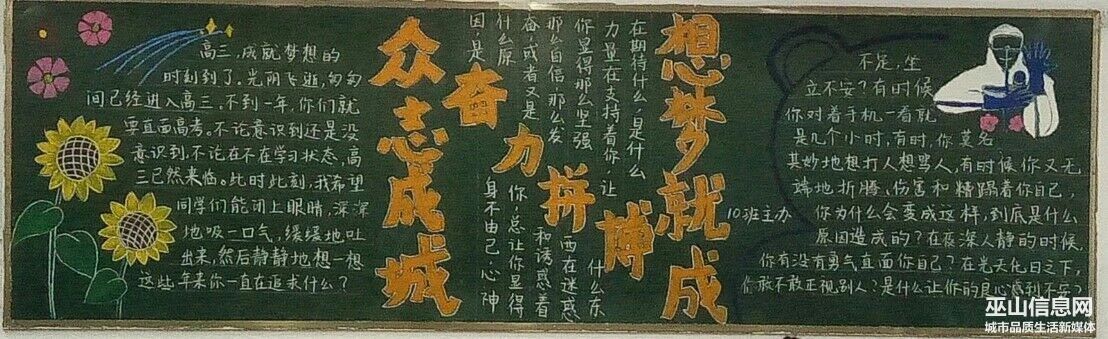 高三，成就梦想的
时刻到了。光阴飞逝，匆匆
间已经进入高三，不到一年，你们就
要直面高考。不论意识到还是没
意识到，不论在不在学习状态，高
三已然来临。此时此刻，我希望
同学们能闭上眼睛，深深
地吸一口气，缓缓地吐
出来，然后静静地想一想
这些年来你一直在追求什么？
众志成城
奋力拼搏
想梦就成
在期待什么？是什么
力量在支持着你，让
你显得那么坚强
那么自信，那么发
奋，或者又是
什么原
因，是
什么东
西在迷惑
和诱惑着
你，总让你显得
身不由己，心神
不定，坐
立不安？有时候
你对着手机一看就
是几个小时，有时，你莫名
其妙地想打人想骂人，有时候你又无
端地折腾、伤害和精蹋着你自己，
你为什么会变成这样，到底是什么
原因造成的？在夜深人静的时候，
你有没有勇气直面你自己？在光天化日之下，
你敢不敢正视别人？是什么让你的良心感到不安？
10班主办
巫山信息网
城市品质生活新媒体